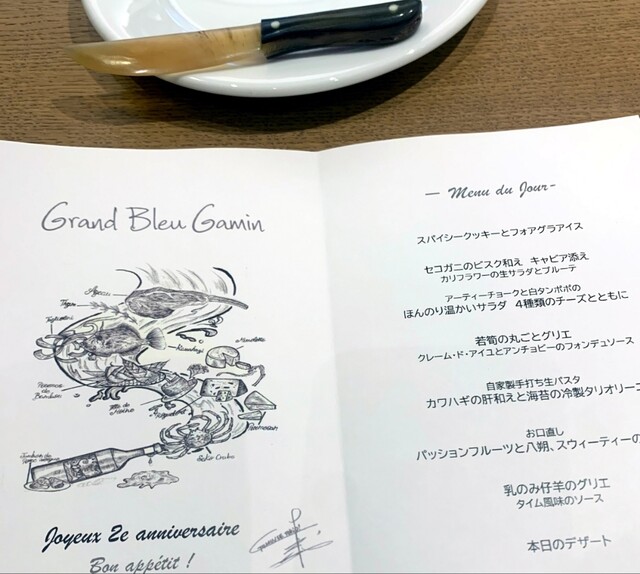 Grand Bleu Gamin
Agneau
Thym
Tête de Moine
Parmesan
Seiko Crabe
Joyeux 2e anniversaire
Bon appétit !
— Menu du Jour-
スパイシークッキーとフォアグラアイス
セコガニのビスク和え キャビア添え
カリフラワーの生サラダとブルーテ
アーティーチョークと白タンポポの
ほんのり温かいサラダ 4種類のチーズとともに
若筍の丸ごとグリエ
クレーム・ド・アイユとアンチョビーのフォンデュソース
自家製手打ち生パスタ
カワハギの肝和えと海苔の冷製タリオリーニ
お口直し
パッションフルーツと八朔、スウィーティーの
乳のみ仔羊のグリエ
タイム風味のソース
本日のデザート